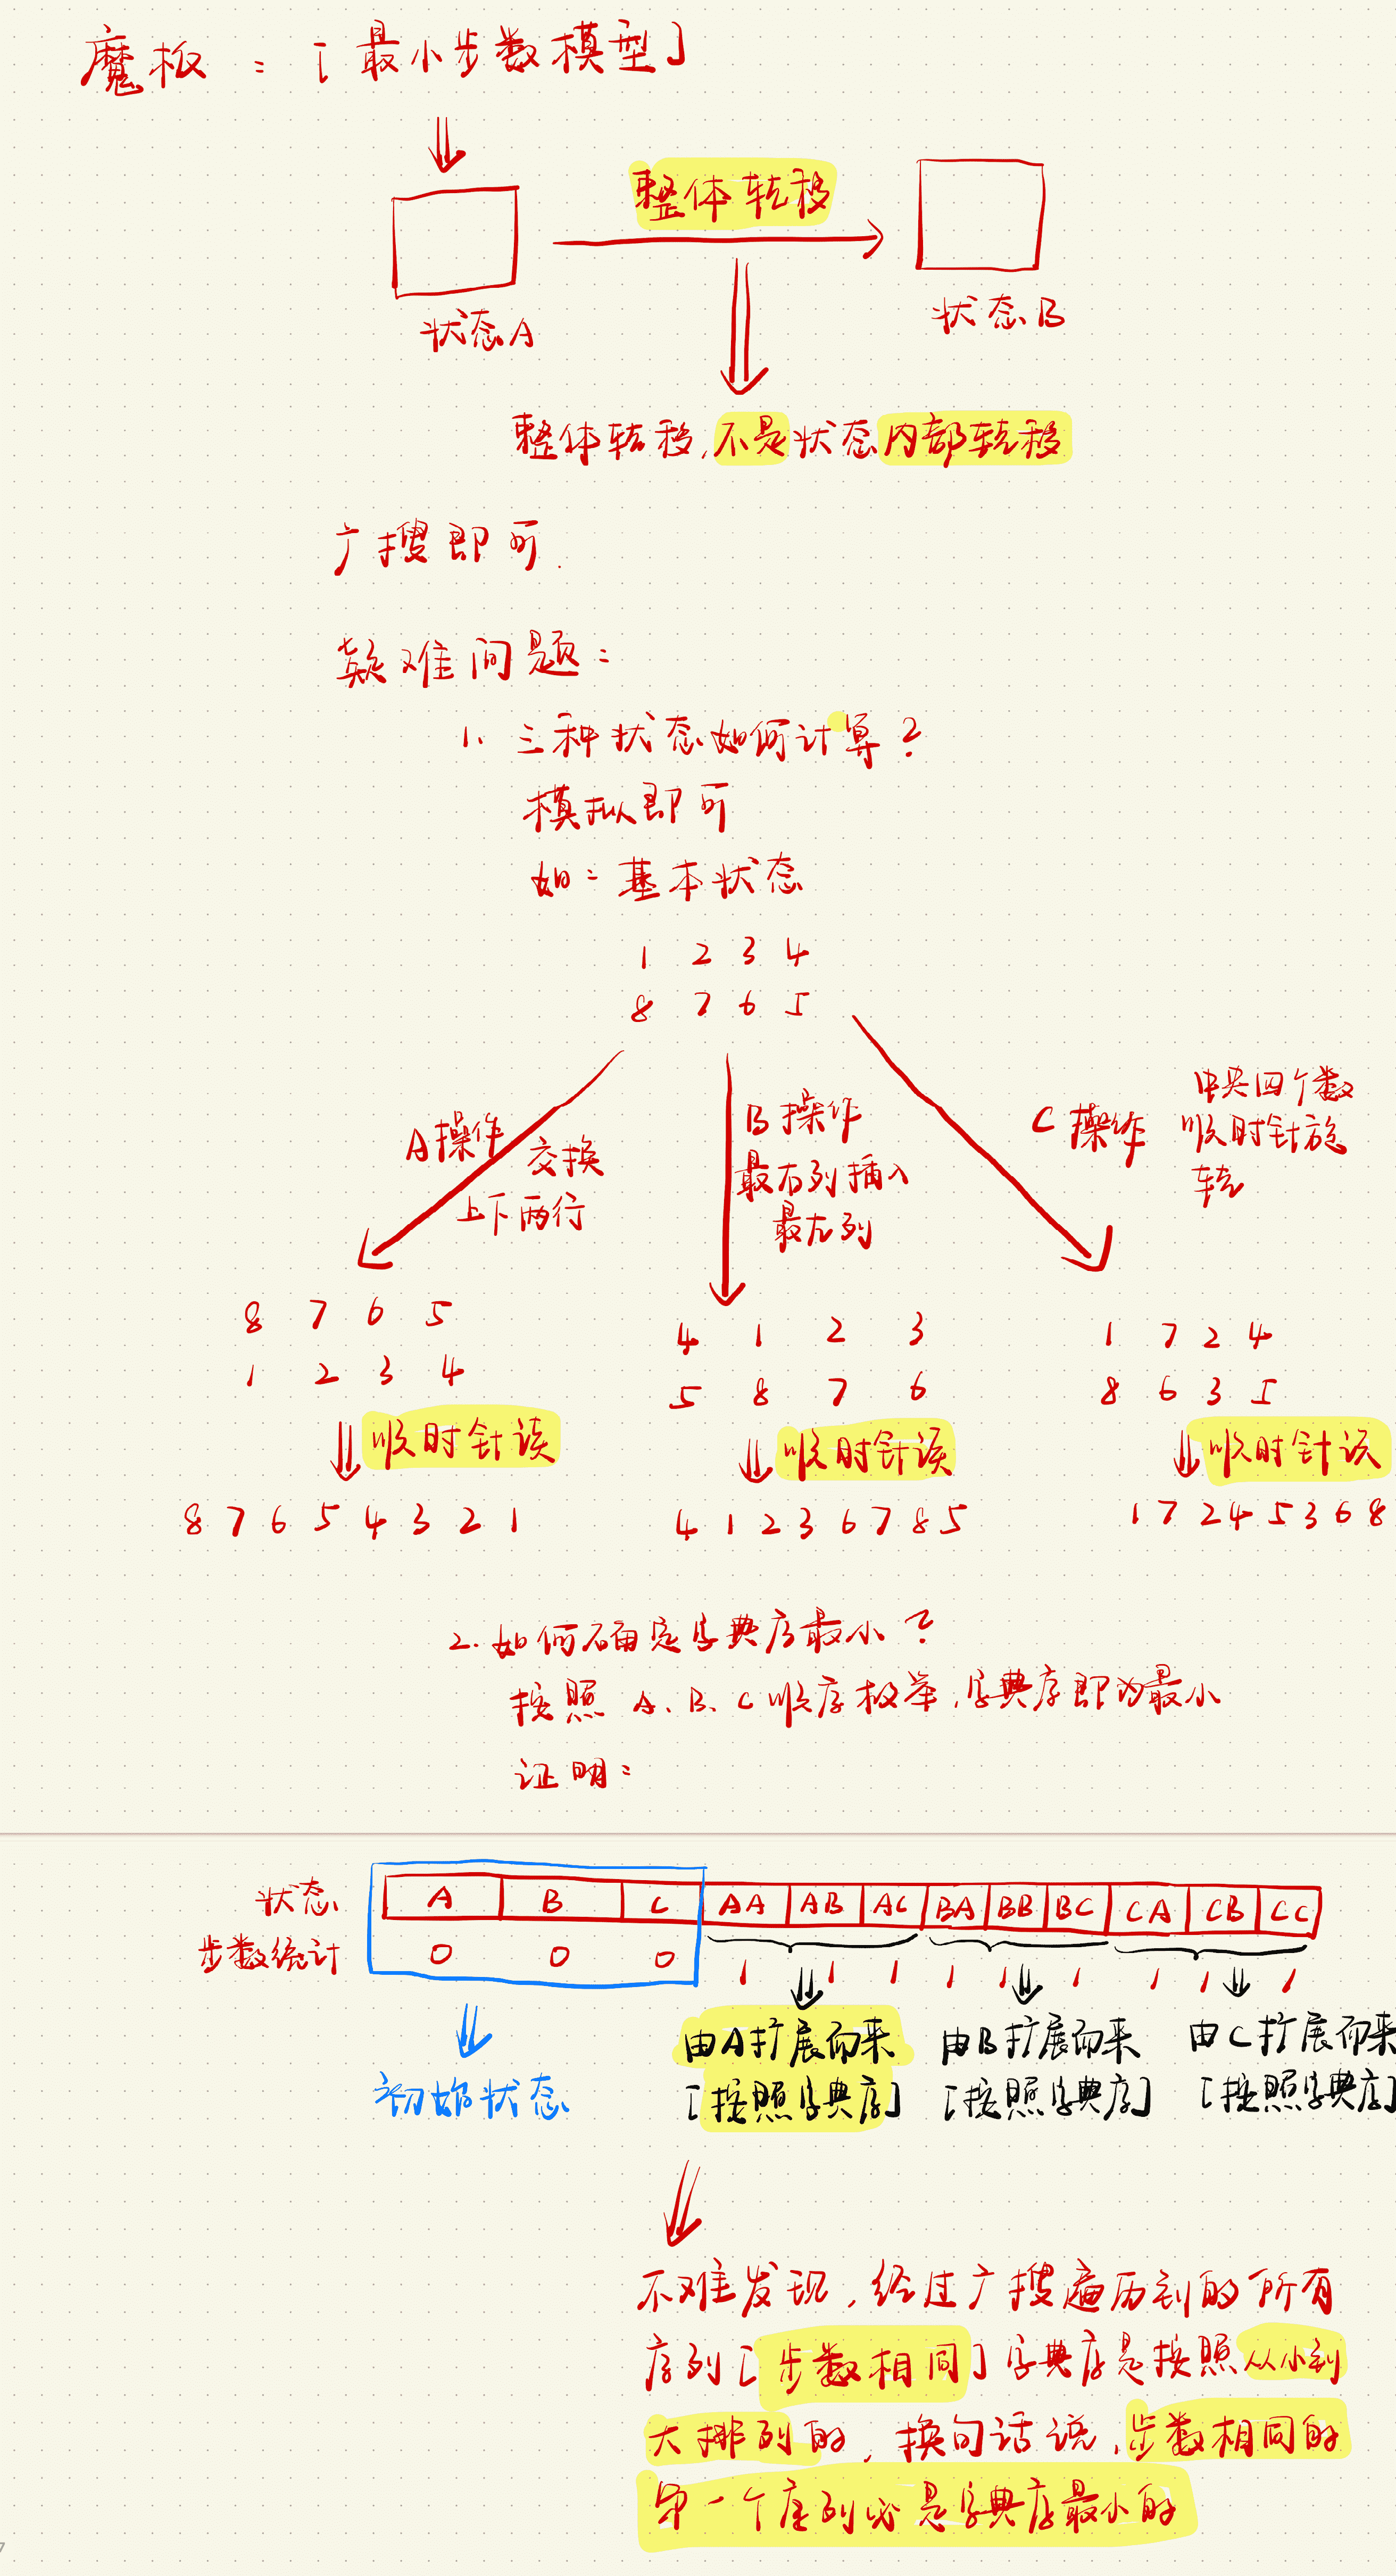 魔板：「最小步数模型」
整体转移
状态A
状态B
整体转移，不是状态内部转移
广搜即可.
疑难问题：
1. 三种状态如何计算？
模拟即可
如：基本状态
1 2 3 4
8 7 6 5
A操作 交换
上下两行
B操作
最右列插入
最左列
C操作
中央四个数
顺时针旋
转
8 7 6 5
1 2 3 4
顺时针读
8 7 6 5 4 3 2 1
4 1 2 3
5 8 7 6
顺时针读
4 1 2 3 6 7 8 5
1 7 2 4
8 6 3 5
顺时针读
1 7 2 4 5 3 6 8
2. 如何确定字典序最小？
按照 A、B、C 顺序枚举，字典序即为最小
证明：
状态 A B C AA AB AC BA BB BC CA CB CC
步数统计 0 0 0 1 1 1 1 1 1 1 1 1
初始状态
由A扩展而来
「按照字典序」
由B扩展而来
「按照字典序」
由C扩展而来
「按照字典序」
不难发现，经过广搜遍历到的所有
序列「步数相同」字典序是按照从小到
大排列的，换句话说，步数相同的
第一个序列必是字典序最小的